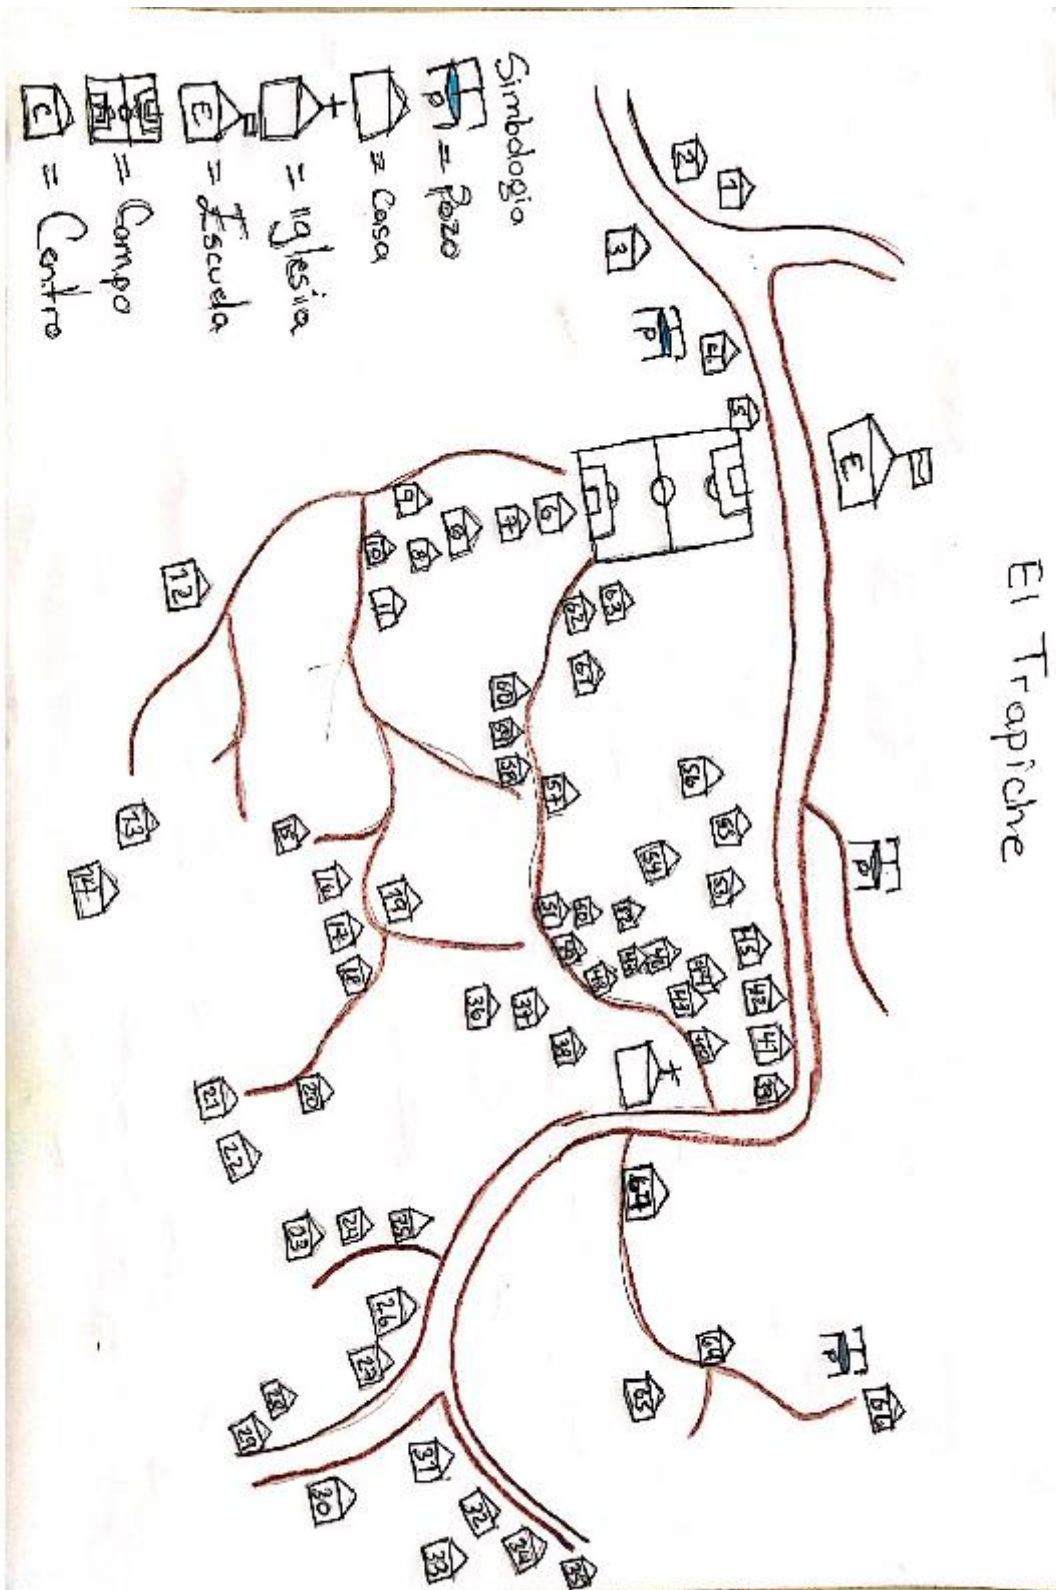 El Trapiche
Simbologia
P = Pozo
= Casa
= iglesiia
E = Escuela
= Campo
C = Centro
1
2
3
P
5
E
6
7
8
9
10
11
12
13
14
17
18
19
20
21
22
23
24
25
26
27
28
29
30
31
32
33
34
35
36
37
38
39
41
42
43
54
56
57
58
60
61
62
63
64
65
66
P
P